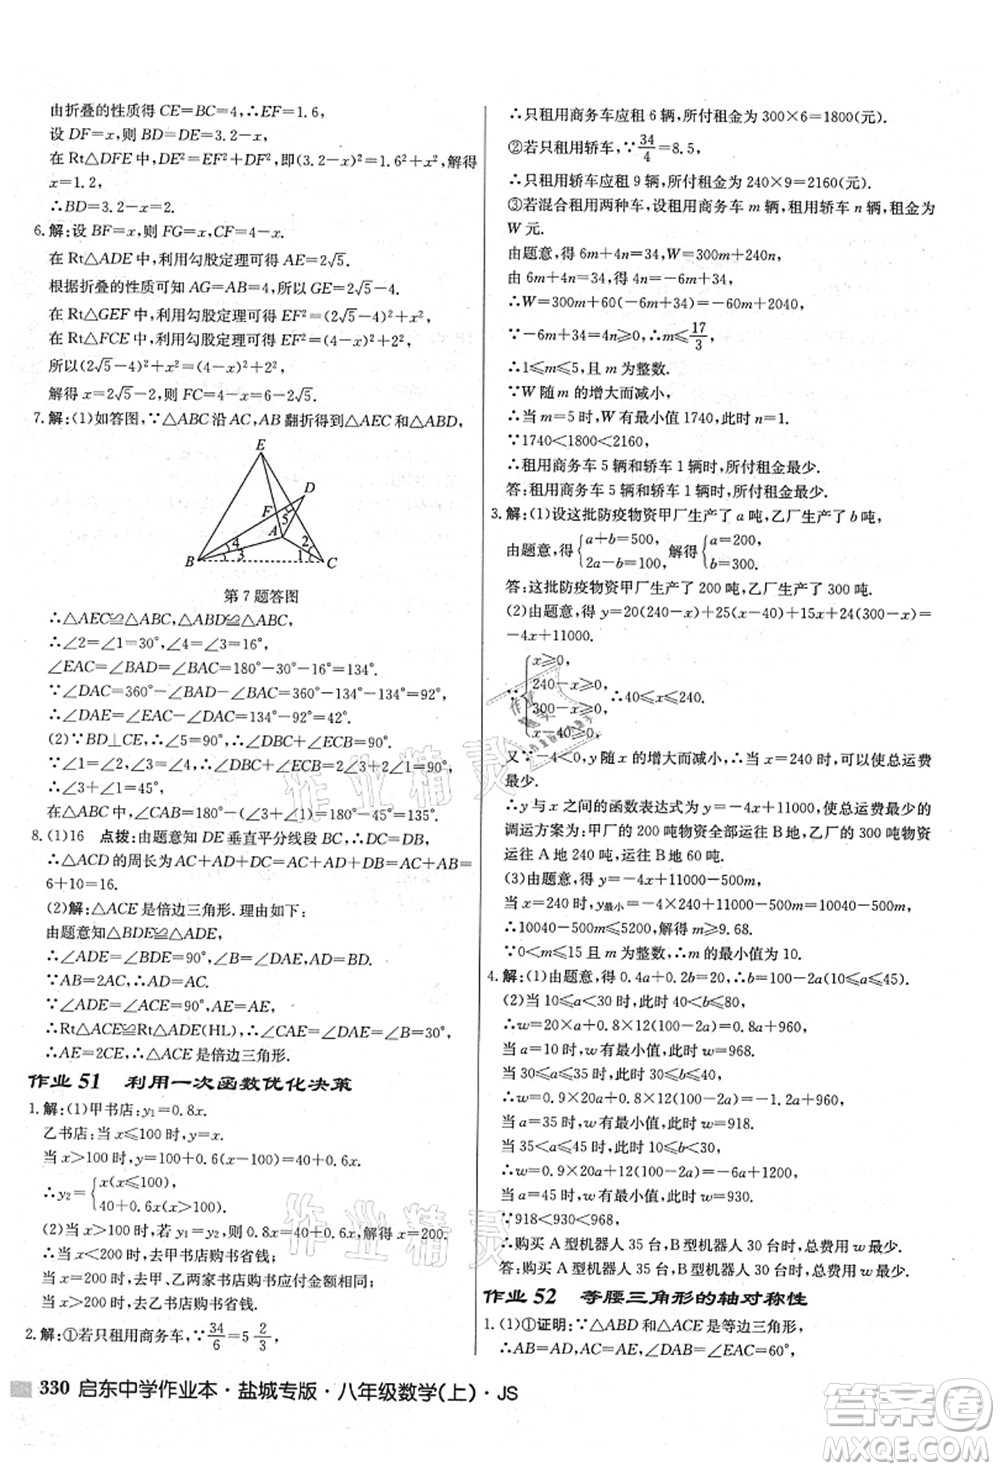 由折叠的性质得 CE=BC=4,∴EF=1.6,
设 DF=x,则 BD=DE=3.2-x,
在 Rt△DFE 中,DE²=EF²+DF²,即(3.2-x)²=1.6²+x²,解得
x=1.2,
∴BD=3.2-x=2.
6.解:设 BF=x,则 FG=x,CF=4-x.
在 Rt△ADE 中,利用勾股定理可得 AE=2√5.
根据折叠的性质可知 AG=AB=4,所以 GE=2√5-4.
在 Rt△GEF 中,利用勾股定理可得 EF²=(2√5-4)²+x²,
在 Rt△FCE 中,利用勾股定理可得 EF²=(4-x)²+2²,
所以(2√5-4)²+x²=(4-x)²+2²,
解得 x=2√5-2,则 BF=2√5-2.
7.解:(1)如答图,∵△ABC 沿 AC,AB 翻折得到△AEC 和△ABD,
E
D
F
5
A
4
3
2
1
B
C
第 7 题答图
∴△AEC≌△ABC,△ABD≌△ABC,
∴∠2=∠1=30°,∠4=∠3=16°,
∠EAC=∠BAD=∠BAC=180°-30°-16°=134°,
∵∠DAC=360°-∠BAC-∠BAD=360°-134°-134°=92°,
∴∠DAE=∠EAC-∠DAC=134°-92°=42°.
(2)∵BD⊥CE,∴∠2+∠5=90°.
∵∠2=∠1,∠5=∠3+∠4=2∠3,
∴∠1+2∠3=90°,
∴∠3+∠1=45°,
在△ABC 中,∠CAB=180°-(∠1+∠3)=135°.
8.(1)16 点拨:由题意知 DE 垂直平分线段 BC,∴DC=DB,
∴△ACD 的周长为 AC+AD+DC=AC+AD+DB=AC+AB=
6+10=16.
(2)解:△ACE 是倍边三角形.理由如下:
由题意知△DBE≌△DAE,
∴∠ADE=∠BDE=90°,AE=BE.
∵∠ADE=∠ACE=90°,AC=AD,AE=AE,
∴Rt△ACE≌Rt△ADE(HL),∴∠CAE=∠DAE=∠B=30°,
∴AE=2CE,∴△ACE 是倍边三角形.
作业 51 利用一次函数优化决策
1.解:(1)甲书店:y₁=0.8x.
乙书店:当 x≤100 时,y₂=x,
当 x>100 时,y₂=100+0.6(x-100)=40+0.6x,
∴y₂={x(x≤100),
40+0.6x(x>100).
(2)当 x>100 时,若 y₁=y₂,则 0.8x=40+0.6x,解得 x=200.
∴当 x<200 时,去甲书店购书省钱;
当 x=200 时,去甲、乙两家书店购书应付金额相同;
当 x>200 时,去乙书店购书省钱.
2.解:①若只租用商务车,∵34/6=5 2/3,
∴只租用商务车应租 6 辆,所付租金为 300×6=1800(元).
②若只租用轿车,∵34/4=8.5,
∴只租用轿车应租 9 辆,所付租金为 240×9=2160(元).
③若混合租用两种车,设租用商务车 m 辆,租用轿车 n 辆,租金为
W 元.
由题意,得 6m+4n=34,W=300m+240n,
由 6m+4n=34,得 4n=-6m+34,
∴W=300m+60(-6m+34)=-60m+2040,
∵-6m+34=4n≥0,∴m≤17/3,
∴1≤m≤5,且 m 为整数.
∵W 随 m 的增大而减小,
∴当 m=5 时,W 有最小值 1740,此时 n=1.
∵1740<1800<2160,
∴租用商务车 5 辆和轿车 1 辆时,所付租金最少.
答:租用商务车 5 辆和轿车 1 辆时,所付租金最少.
3.解:(1)设这批防疫物资甲厂生产了 a 吨,乙厂生产了 b 吨,
由题意,得{a+b=500,
2a-b=100, 解得{a=200,
b=300.
答:这批防疫物资甲厂生产了 200 吨,乙厂生产了 300 吨.
(2)由题意,得 y=20(240-x)+25(x-40)+15x+24(300-x)=
-4x+11000.
∵{x≥0,
240-x≥0,
300-x≥0,
x-40≥0, ∴40≤x≤240.
又∵-4<0,∴y 随 x 的增大而减小,∴当 x=240 时,总运费最少.
∴y 与 x 之间的函数表达式为 y=-4x+11000,使总运费最少的
调运方案为:甲厂的 200 吨物资全部运往 B 地,乙厂的 300 吨物资
运往 A 地 240 吨,运往 B 地 60 吨.
(3)由题意和(2)可得 y=-4x+11000-500m,
当 x=240 时,y最小=-4×240+11000-500m=10040-500m,
∴10040-500m≤5200,解得 m≥9.68.
∵0<m≤15 且 m 为整数,∴m 的最小值为 10.
4.解:(1)由题意,得 0.4a+0.2b=20,∴b=100-2a(10≤a≤45).
(2)当 10≤a<30 时,此时 40<b≤80,
∴w=20×a+0.8×12(100-2a)=0.8a+960,
当 a=10 时,w 有最小值,此时 w=968.
当 30≤a≤35 时,此时 30≤b≤40,
∴w=0.9×20a+0.8×12(100-2a)=-1.2a+960,
当 a=35 时,w 有最小值,此时 w=918.
当 35<a≤45 时,此时 10≤b<30,
∴w=0.9×20a+12(100-2a)=-6a+1200,
当 a=45 时,w 有最小值,此时 w=930.
∵918<930<968,
∴购买 A 型机器人 35 台,B 型机器人 30 台时,总费用 w 最少.
答:购买 A 型机器人 35 台,B 型机器人 30 台时,总费用 w 最少.
作业 52 等腰三角形的轴对称性
1.(1)①证明:∵△ABD 和△ACE 是等边三角形,
∴AB=AD,AC=AE,∠DAB=∠EAC=60°,
330 启东中学作业本·盐城专版·八年级数学(上)·JS
作业精灵
作业精灵
答案圈
MXQE.COM